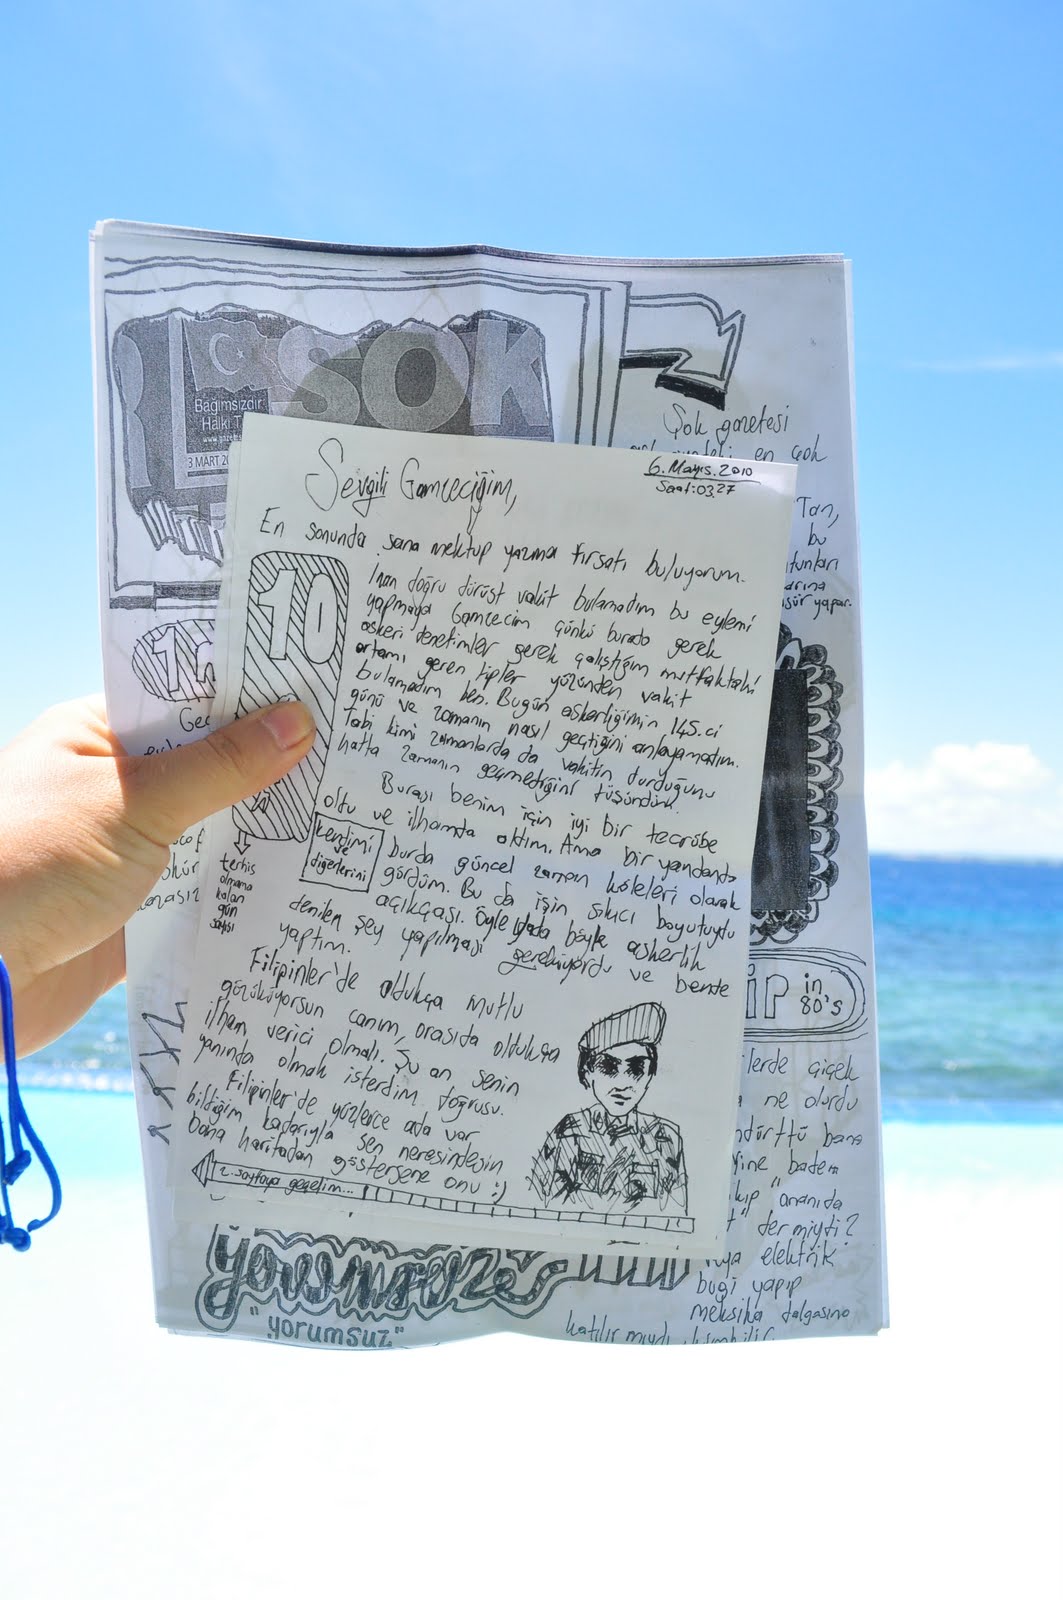 ŞOK
Bağımsızdır
Halkı
3 MART 20
Şok gazetesi
en çok
Tan,
bu
yapar.
Sevgili Gamzeciğim,
6.Mayıs.2010
Saat:03.27
En sonunda sana mektup yazma fırsatı buluyorum.
İnan doğru dürüst vakit bulamadım bu eylemi
yapmaya Gamzecim çünkü burada gerek
askeri denetimler gerek çalıştığım mutfaktaki
ortamı geren tipler yüzünden vakit
bulamadım ben. Bugün askerliğimin 145.ci
günü ve zamanın nasıl geçtiğini anlayamadım.
Tabi kimi zamanlarda da vakitin durduğunu
hatta zamanın geçmediğini düşündüm.
10
terhis
olmama
kalan
gün
sayısı
Burası benim için iyi bir tecrübe
oldu ve ilhamda aldım. Ama bir yandanda
kendimi
ve
diğerlerini
burda güncel zaman köleleri olarak
gördüm. Bu da işin sıkıcı boyutuydu
açıkçası. Öyle yada böyle askerlik
denilen şey yapılması gerekiyordu ve bende
yaptım.
Filipinler'de oldukça mutlu
gözüküyorsun canım, orasıda oldukça
ilham verici olmalı. Şu an senin
yanında olmak isterdim doğrusu.
Filipinler'de yüzlerce ada var
bildiğim kadarıyla sen neresindesin
bana haritadan göstersene onu :)
2. sayfaya geçelim...
in
80's
çiçek
ne olurdu
bana
badem
"ananıda
dermiydi?
elektrik
buği yapıp
meksika dalgasına
katılır mıydı
yorumsuz
"yorumsuz"